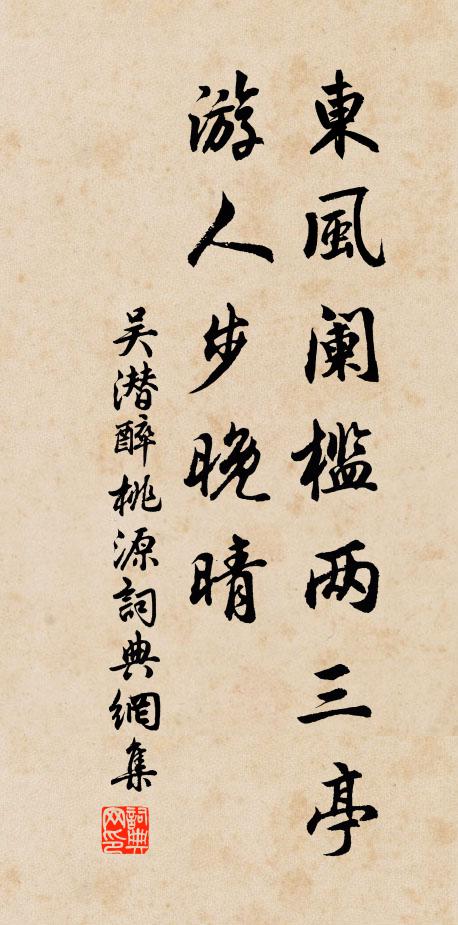 東風阑檻两三亭
游人步晚晴
吴潜醉桃源詞典網集
詞典网印